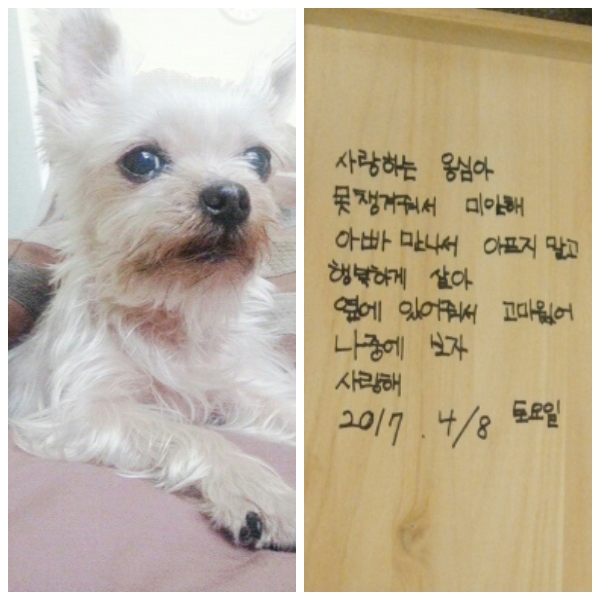 사랑하는 옹심아
못챙겨줘서 미안해
아빠 만나서 아프지 말고
행복하게 살아
옆에 있어줘서 고마웠어
나중에 보자
사랑해
2017. 4/8 토요일